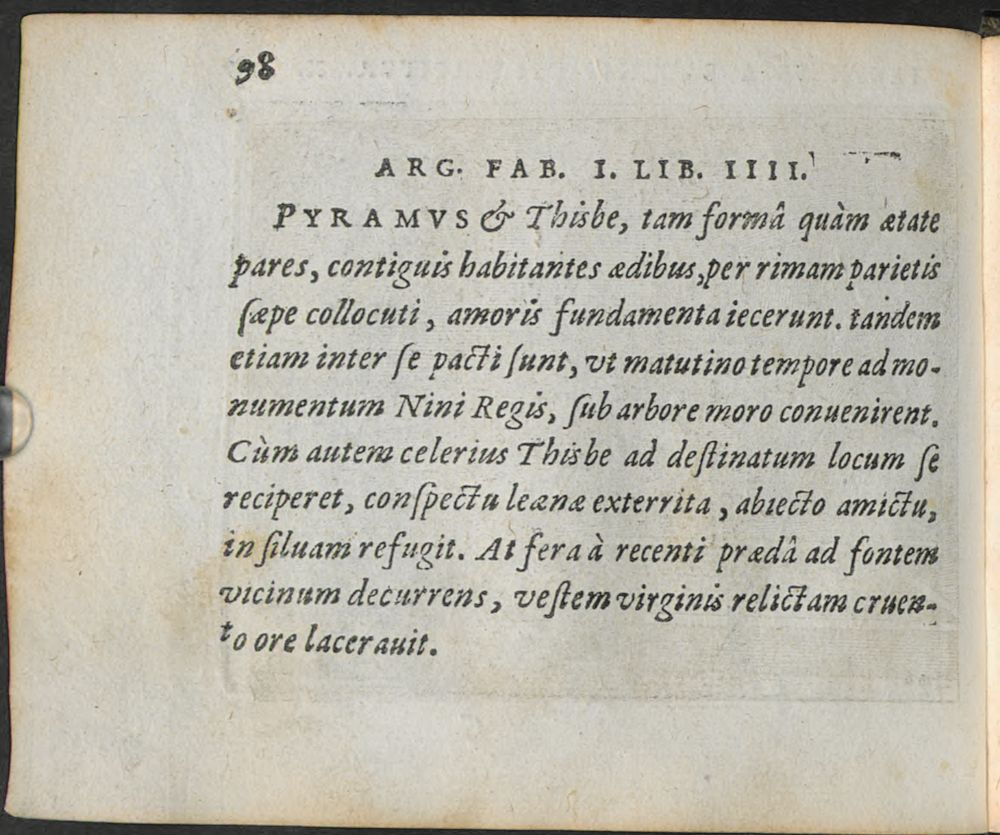 98
ARG. FAB. I. LIB. IIII.
PYRAMVS & Thisbe, tam formâ quàm ætate
pares, contiguis habitantes ædibus, per rimam parietis
ſæpe collocuti, amoris fundamenta iecerunt. tandem
etiam inter ſe pacti ſunt, vt matutino tempore ad mo-
numentum Nini Regis, ſub arbore moro conuenirent.
Cùm autem celerius Thisbe ad deſtinatum locum ſe
reciperet, conſpectu leænæ exterrita, abiecto amictu,
in ſiluam refugit. At fera à recenti prædâ ad fontem
vicinum decurrens, veſtem virginis relictam cruen-
to ore lacerauit.